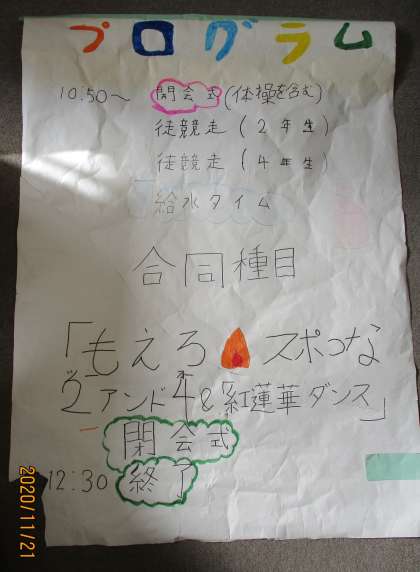 プログラム
10:50～ 開会式(体操を含む)
徒競走(2年生)
徒競走(4年生)
給水タイム
合同種目
「もえろ スポコな
2アンド4&紅蓮華ダンス」
閉会式
12:30 終了
2020/11/21